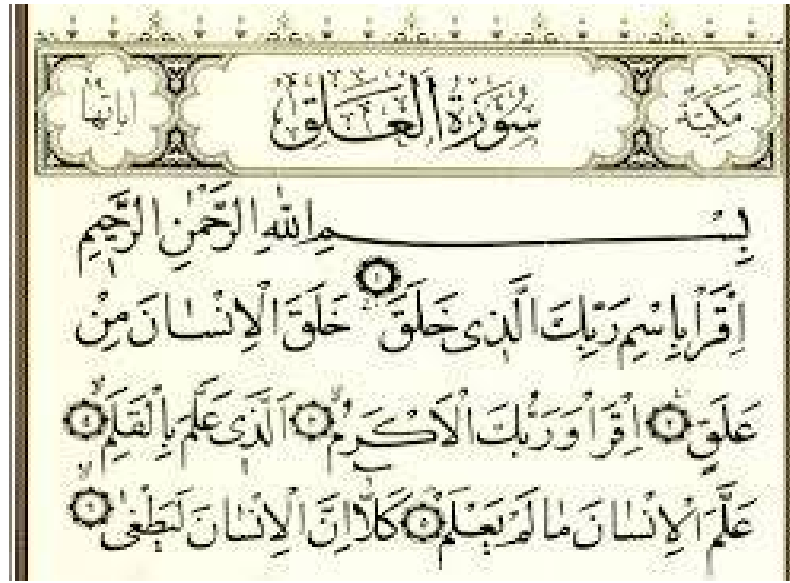 مَكِّيَّةٌ سُورَةُ الْعَلَقِ اٰيَاتُهَا
بِسْمِ اللّٰهِ الرَّحْمٰنِ الرَّحِيمِ
اِقْرَأْ بِاسْمِ رَبِّكَ الَّذِى خَلَقَ ١ خَلَقَ الْاِنْسَانَ مِنْ
عَلَقٍ ٢ اِقْرَأْ وَرَبُّكَ الْاَكْرَمُ ٣ اَلَّذِى عَلَّمَ بِالْقَلَمِ ٤
عَلَّمَ الْاِنْسَانَ مَا لَمْ يَعْلَمْ ٥ كَلَّا اِنَّ الْاِنْسَانَ لَيَطْغٰى ٦